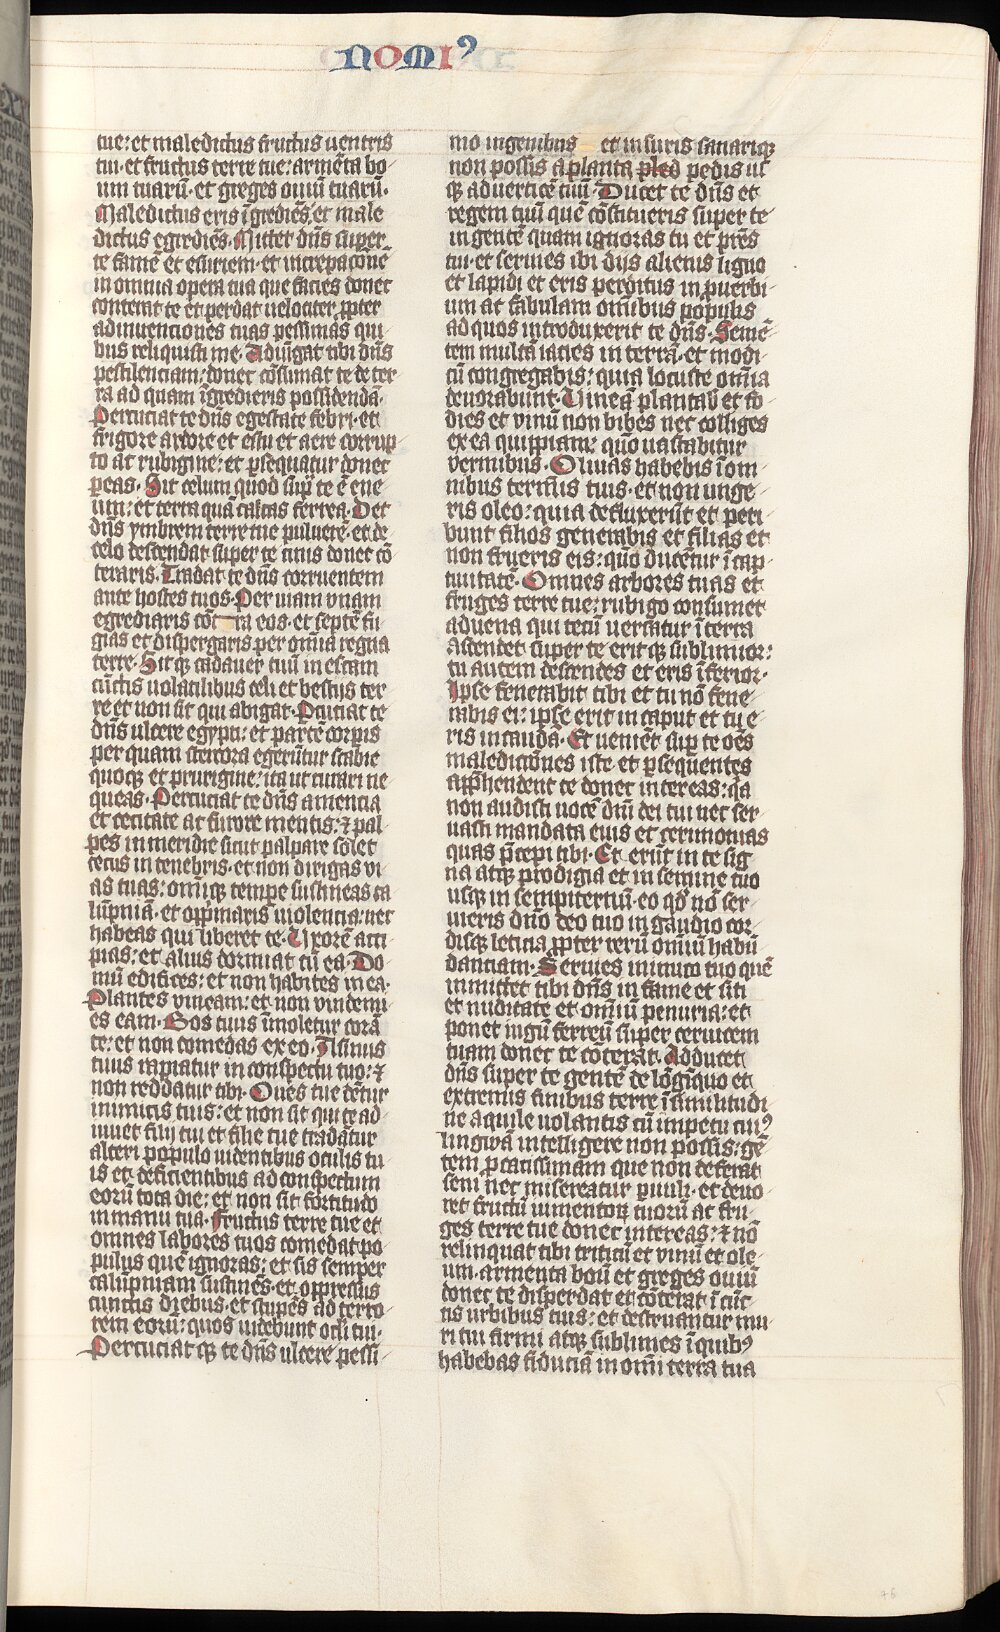 nomiꝰ
tue: et maledictus fructus uentris
tui· et fructus terre tue: armēta bo
um tuarū· et greges ouiū tuarū·
Maledictus eris īgrediēs et male
dictus egirdiēs· Mittet dn̄s super
te famē et esuriem· et increpaconē
in omnia opera tua que facies donec
conterat te et perdat uelociter ꝓpter
adinuentiones tuas pessimas qui
bus reliquisti me· Adiūgat tibi dn̄s
pestilenciam: donec cōsumat te de ter
ra ad quam īgredieris possidendā·
Percuciat te dn̄s egestate febri· et
frigore ardore et estu et aere corrup
to ac rubigine: et ꝑsequatur donec
ꝑeas· Sit celum quod sup̄ te ē ene
um: et terra quā calcas ferrea· Det
dn̄s ymbrem terre tue puluerē· et de
celo descendat super te cinis donec cō
teraris· Tradat te dn̄s corruentem
ante hostes tuos· Per uiam vnam
egrediaris cōt ra eos· et septē fu
gias et dispergaris per omnia regna
terre· Sit qꝫ cadauer tuū in escam
cūctis uolatilibus celi et bestijs ter
re et non sit qui abigat· Pcuciat te
dn̄s ulcere egypti: et parte corpis
per quam stercora egerūtur scabie
quoqꝫ et prurigine: ita ut curari ne
queas· Percuciat te dn̄s amencia
et cecitate ac furore mentis: ⁊ pal
pes in meridie sicut palpare solet
cecus in tenebris· et non dirigas vi
as tuas: omīqꝫ tempe sustineas ca
lūpniā· et opp̄maris uiolencia: nec
habeas qui liberet te· Uxorē acci
pias: et alius dormiat cū ea· Do
mū edifices: et non habites in ea·
Plantes vineam: et non vindemi
es eam· Bos tuus īmoletur corā
te: et non comedas ex eo· Asinus
tuus rapiatur in conspectu tuo: ⁊
non reddatur tibi· Oues tue dētur
inimicis tuis: et non sit qui te ad
iuuet filij tui et filie tue tradātur
alteri populo uidentibus oculis tu
is et deficientibus ad conspectum
eorū tota die: et non sit fortitudo
in manu tua· Fructus terre tue et
omnes labores tuos comedat po
pulus quē ignoras: et sis semper
calūpniam sustinēs· et oppressus
cunctis diebus· et stupēs ad terro
rem eorū: quos uidebunt oc̄li tui·
Percuciat qꝫ te dn̄s ulcere pessi
mo in genibus et in suris sanariqꝫ
non possis a planta pled pedis us
qꝫ ad uerticē tuū· Ducet te dn̄s et
regem tuū quē cōstitueris super te
in gentē quam ignoras tu et pr̄es
tui· et seruies ibi dijs alienis ligno
et lapidi et eris perditus in ꝓuerbi
um ac fabulam omībus populis
ad quos introduxerit te dn̄s· Semē
tem multā iacies in terrā· et modi
cū congregabis: quia locuste omīa
deuorabunt· Vineā plantab et fo
dies et vinū non bibes nec colliges
ex ea quippiam: quō uastabitur
vermibus· Oliuas habebis ī om
nibus termīs tuis· et non unge
ris oleo: quia defluxerūt et peri
bunt filios generabis et filias et
non frueris eis: quō ducētur ī cap
tiuitatē· Omnes arbores tuas et
fruges terre tue: rubigo consumet
aduena qui tecū uersatur ī terra
ascendet super te erit qꝫ sublimior:
tu autem descendes et eris īferior·
Ipse fenerabit tibi et tu nō fene
rabis ei: ipse erit in caput et tu e
ris in cauda· Et ueniēt sup̄ te oēs
maledicōnes iste et ꝑsequentes
app̄hendent te donec intereas: q̄a
non audisti uocē dn̄i dei tui nec ser
uasti mandata eius et cerimonias
quas p̄cepi tibi· Et erūt in te sig
na atqꝫ prodigia et in semine tuo
usqꝫ in sempiternū· eo qd̄ nō ser
uieris dn̄o deo tuo in gaudio cor
disqꝫ leticia ꝓpter rerū omniū habū
danciam· Seruies inimico tuo quē
inmittet tibi dn̄s in fame et siti
et nuditate et omīū penuria: et
ponet iugū ferreū super ceruicem
tuam donec te cōterat· Adducet
dn̄s super te gentē de lōgīquo et
extremis finibus terre ī similitudi
ne aquile uolantis cū impetu cuiꝰ
lingwā intelligere non possis: gē
tem ꝓcacissimam que non deferat
seni nec misereatur ꝑuuli· et deuo
ret fructū iumentoꝝ tuorū ac fru
ges terre tue donec intereas: ⁊ nō
relinquat tibi triticū et vinū et ole
um· armenta boū et greges ouiū
donec te disperdat et cōterat ī cūc
tis urbibus tuis: et destruantur mu
ri tui firmi atqꝫ sublimes ī quibꝰ
habebas fiduciā in omī terra tua
76